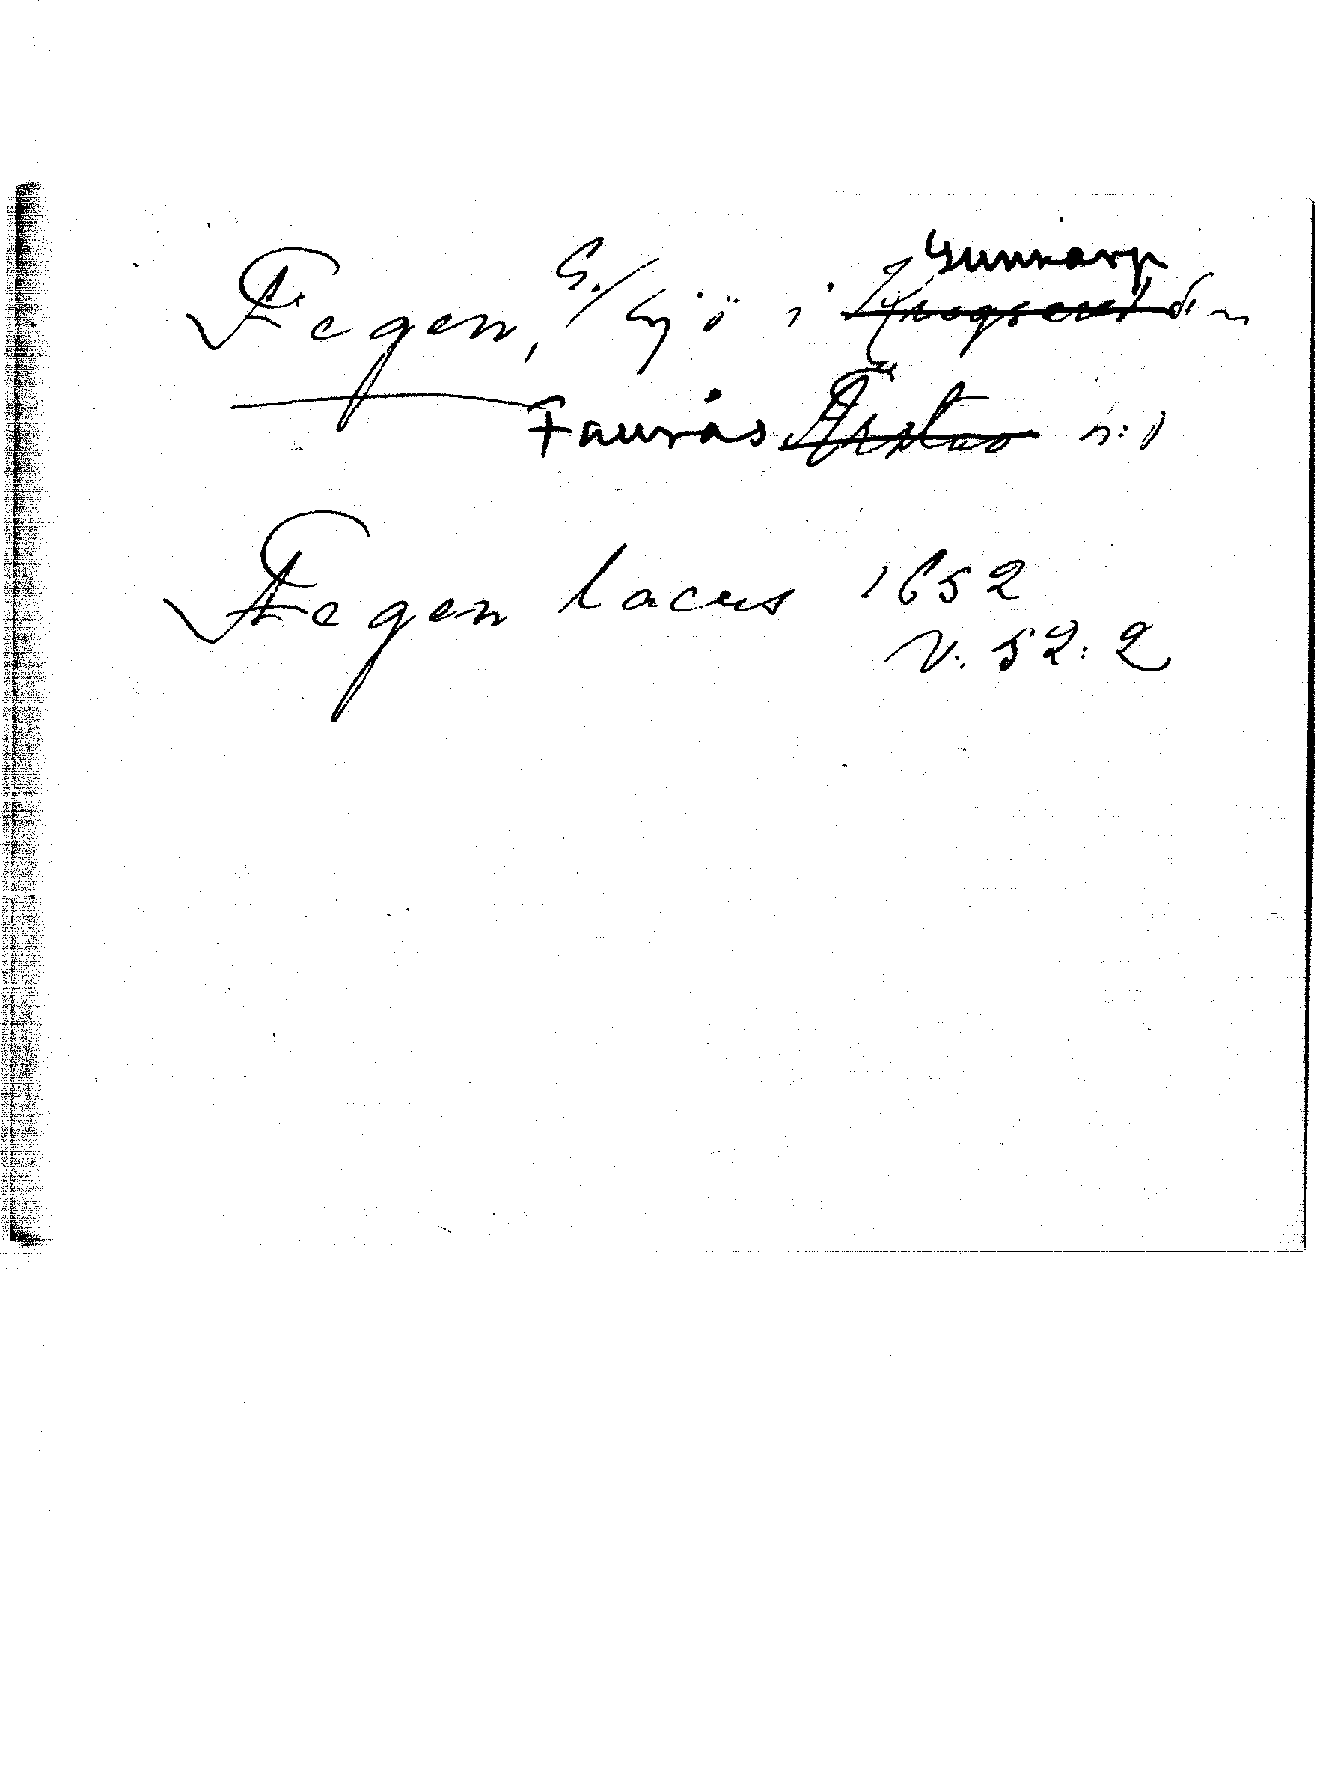 Gunnarp
Fegen, S./ sjö i Krogsered sn
Faurås Årstad h:d
Fegen lacus 1652
V. 52:2